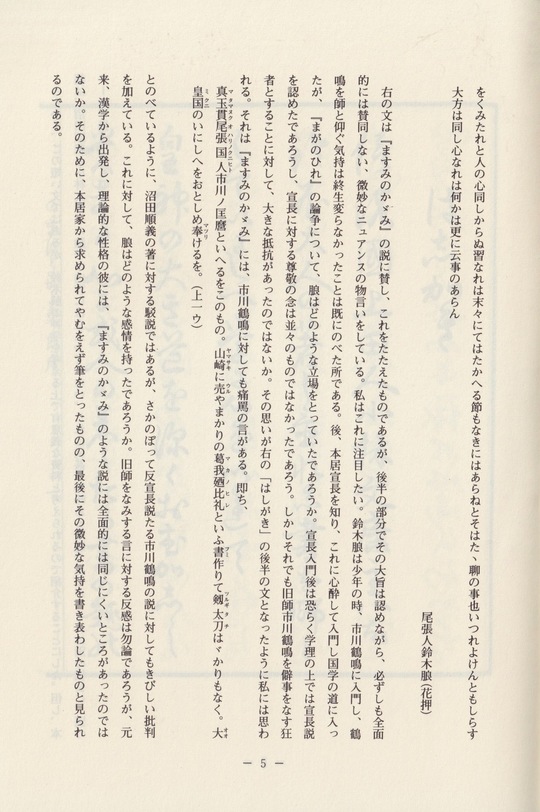 をくみたれと人の心同しからぬ習なれは末々にてはたかへる節もなきにはあらねとそはたゝ聊の事也いつれよけんともしらす
大方は同し心なれは何かは更に云事のあらん
尾張人鈴木朖(花押)
右の文は『ますみのかゞみ』の説に賛し、これをたたえたものであるが、後半の部分でその大旨は認めながら、必ずしも全面
的には賛同しない、微妙なニュアンスの物言いをしている。私はこれに注目したい。鈴木朖は少年の時、市川鶴鳴に入門し、鶴
鳴を師と仰ぐ気持は終生変らなかったことは既にのべた所である。後、本居宣長を知り、これに心酔して入門し国学の道に入っ
たが、『まがのひれ』の論争について、朖はどのような立場をとっていたであろうか。宣長入門後は恐らく学理の上では宣長説
を認めたであろうし、宣長に対する尊敬の念は並々のものではなかったであろう。しかしそれでも旧師市川鶴鳴を僻事をなす狂
者とすることに対して、大きな抵抗があったのではないか。その思いが右の「はしがき」の後半の文となったように私には思わ
れる。それは『ますみのかゞみ』には、市川鶴鳴に対しても痛罵の言がある。即ち、
真玉貫尾張国人市川ノ匡麿といへるをこのもの。山崎に売やまかりの葛我廼比礼といふ書作りて劔太刀はゞかりもなく。大
皇国のいにしへをおとしめ奉けるを。(上一ウ)
とのべているように、沼田順義の著に対する駁説ではあるが、さかのぼって反宣長説たる市川鶴鳴の説に対してもきびしい批判
を加えている。これに対して、朖はどのような感情を持ったであろうか。旧師をなみする言に対する反感は勿論であろうが、元
来、漢学から出発し、理論的な性格の彼には、『ますみのかゞみ』のような説には全面的には同じにくいところがあったのでは
ないか。そのために、本居家から求められてやむをえず筆をとったものの、最後にその微妙な気持を書き表わしたものと見られ
るのである。
― 5 ―